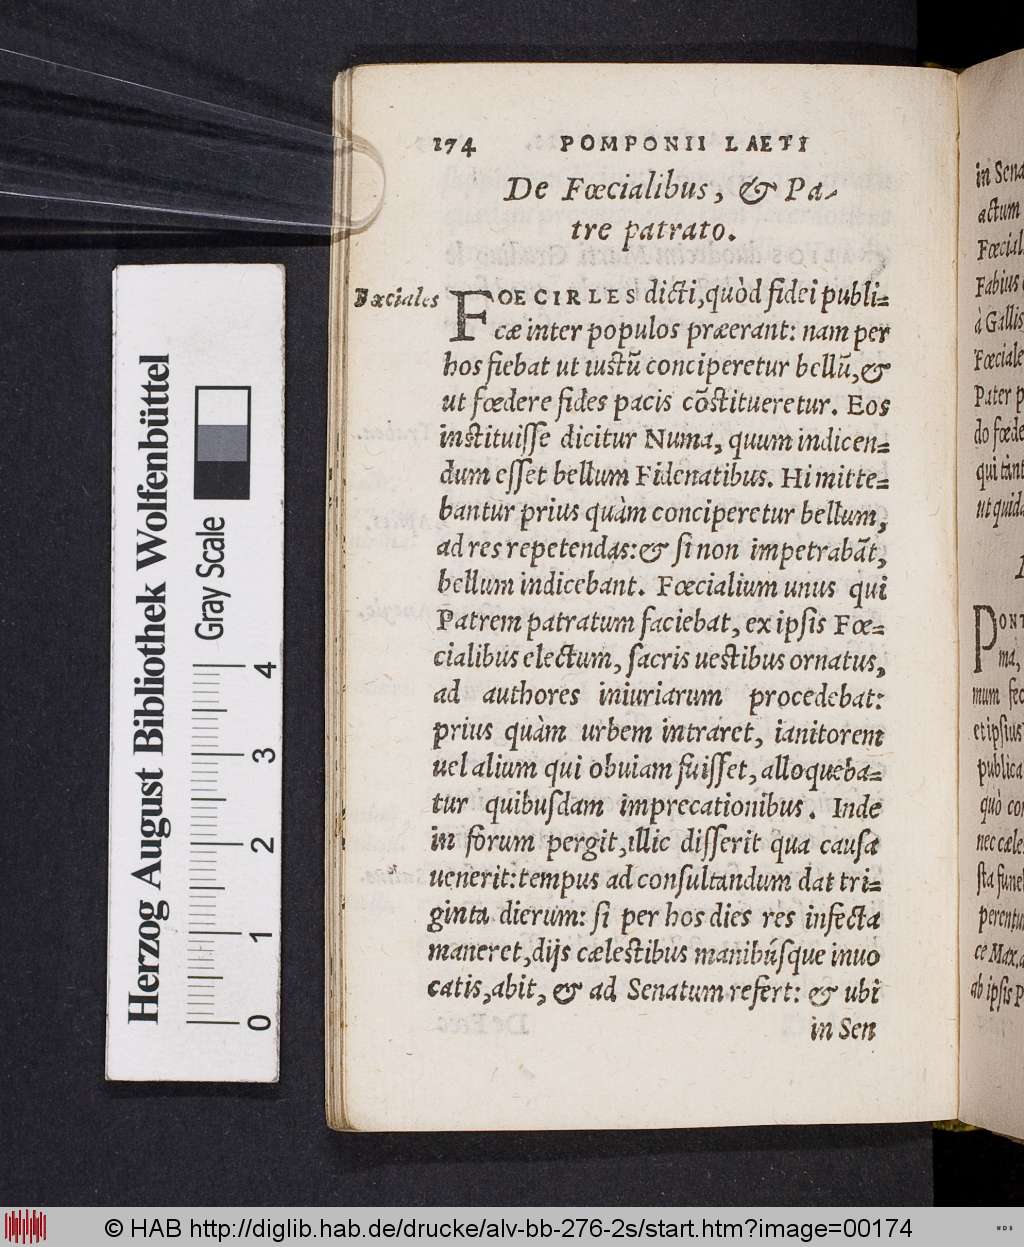 174 POMPONII LAETI
De Fœcialibus, & Pa-
tre patrato.
Fœciales
FOECIRLES dicti, quòd fidei publi=
cæ inter populos præerant: nam per
hos fiebat ut iustũ conciperetur bellũ, &
ut fœdere fides pacis cõstitueretur. Eos
instituisse dicitur Numa, quum indicen=
dum esset bellum Fidenatibus. Hi mitte=
bantur prius quàm conciperetur bellum,
ad res repetendas: & si non impetrabãt,
bellum indicebant. Fœcialium unus qui
Patrem patratum faciebat, ex ipsis Fœ=
cialibus electum, sacris uestibus ornatus,
ad authores iniuriarum procedebat:
prius quàm urbem intraret, ianitorem
uel alium qui obuiam fuisset, alloqueba=
tur quibusdam imprecationibus. Inde
in forum pergit, illic disserit qua causa
uenerit: tempus ad consultandum dat tri=
ginta dierum: si per hos dies res infecta
maneret, dijs cælestibus manibúsque inuo
catis, abit, & ad Senatum refert: & ubi
in Sen
in Sena
actum
Fœciali
Fabius
à Gallis
Fœciale
Pater p
do fœde
qui tant
ut quida
PONT
ma,
mum fec
et ipsius
publica
quò con
nec cæle
sta fune
perentur
ce Max.
ab ipsis P
Herzog August Bibliothek Wolfenbüttel
Gray Scale
0 1 2 3 4
© HAB http://diglib.hab.de/drucke/alv-bb-276-2s/start.htm?image=00174
WDB